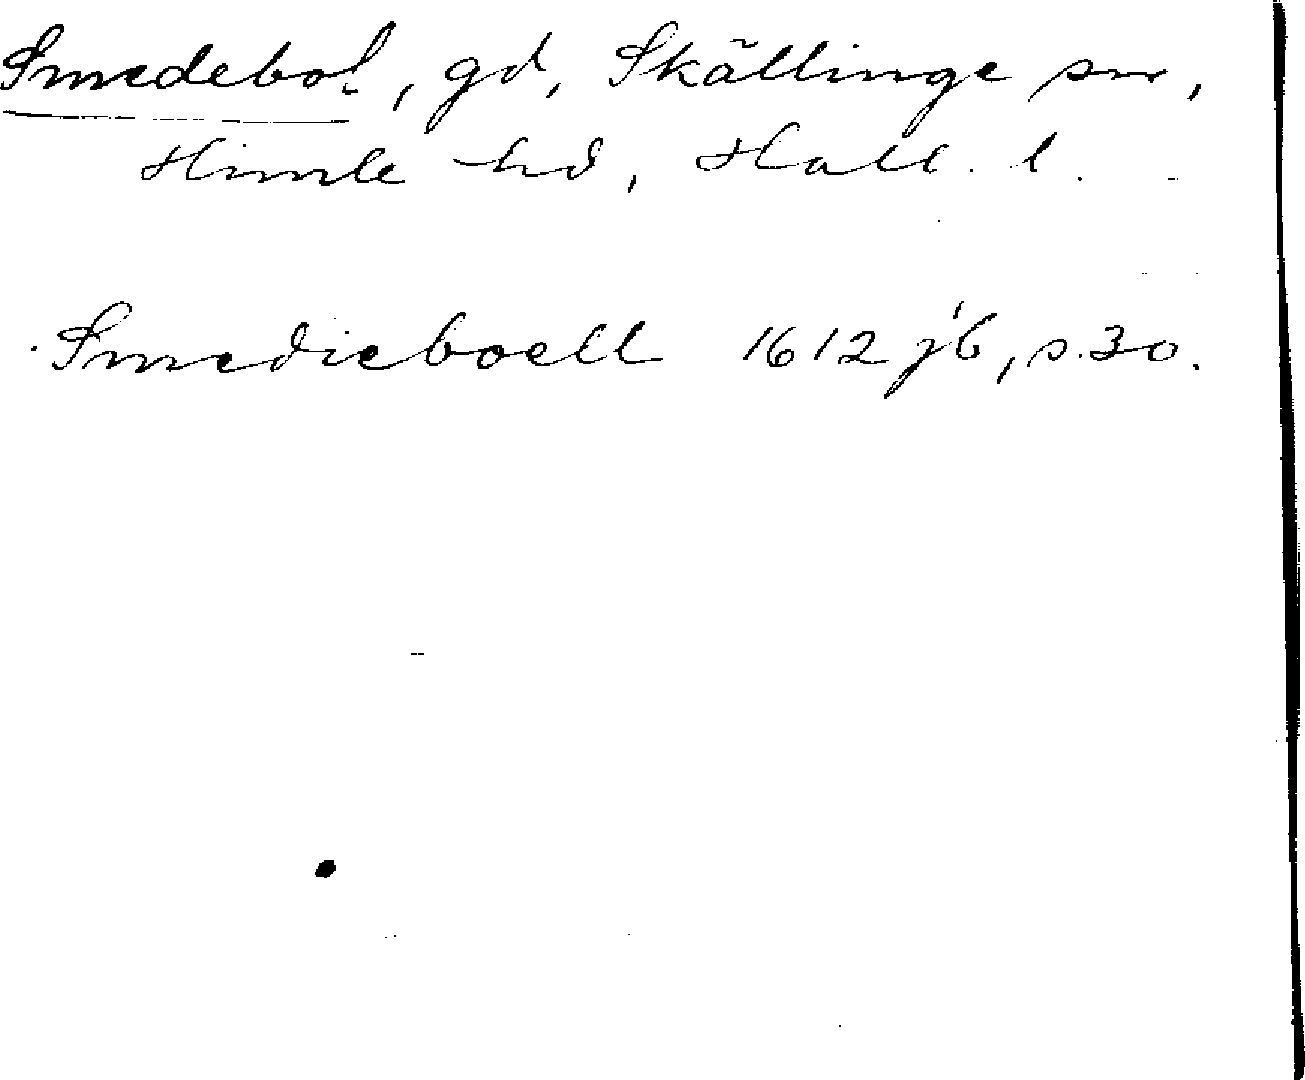 Smedebol, gd, Skällinge sn,
Himle hd, Hall. l.
Smedieboell 1612 jb, s. 30.